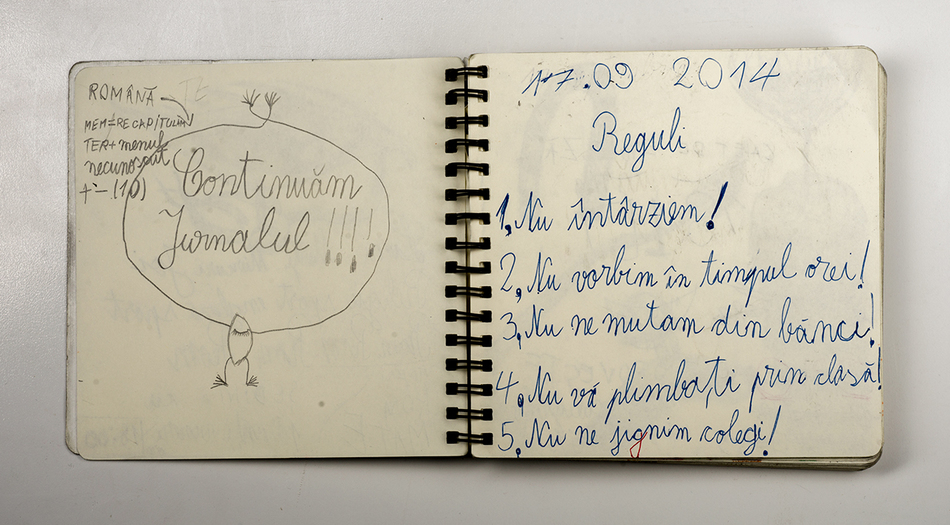 ROMÂNĂ
MEM=RECAPITULĂM
TER+ menul
necunoscut
+ - (10)
Continuăm
Jurnalul !!!!
17.09 2014
Reguli
1, Nu întârziem!
2, Nu vorbim în timpul orei!
3, Nu ne mutam din bănci!
4, Nu vă plimbați prin clasă!
5, Nu ne jignim colegi!